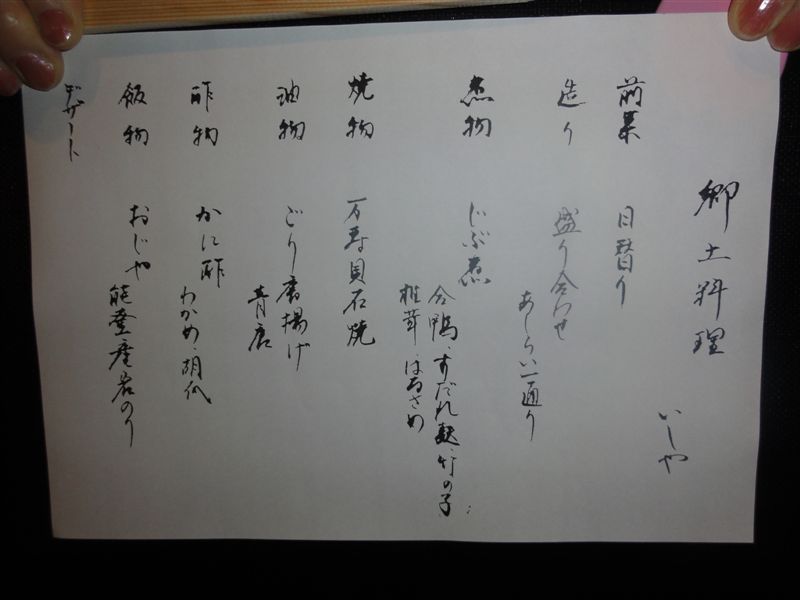 郷土料理
いしや
前菜 日替り
造り 盛り合わせ
あしらい一通り
煮物 じぶ煮
合鴨、すだれ麩、竹の子
椎茸、はるさめ
焼物 万寿貝石焼
油物 ごり唐揚げ
青唐
酢物 かに酢
わかめ、胡瓜
飯物 おじや
能登産岩のり
デザート